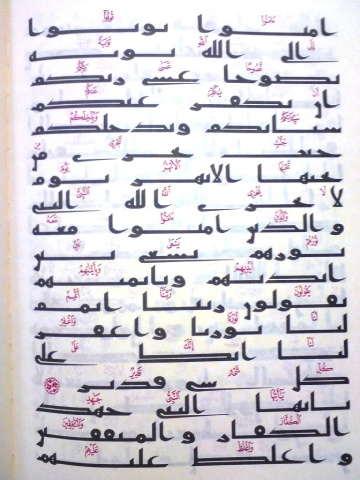 امنوا توبوا
الى الله توبه
نصوحا عسى ربكم
ان يكفر عنكم
سياتكم ويدخلكم
جنت تجرى من
تحتها الانهر يوم
لا يخزى الله النبى
والذين امنوا معه
نورهم يسعى بين
ايديهم وبايمنهم
يقولون ربنا اتمم
لنا نورنا واغفر
لنا انك على
كل شى قدير
يايها النبى جهد
الكفار والمنفقين
واغلظ عليهم